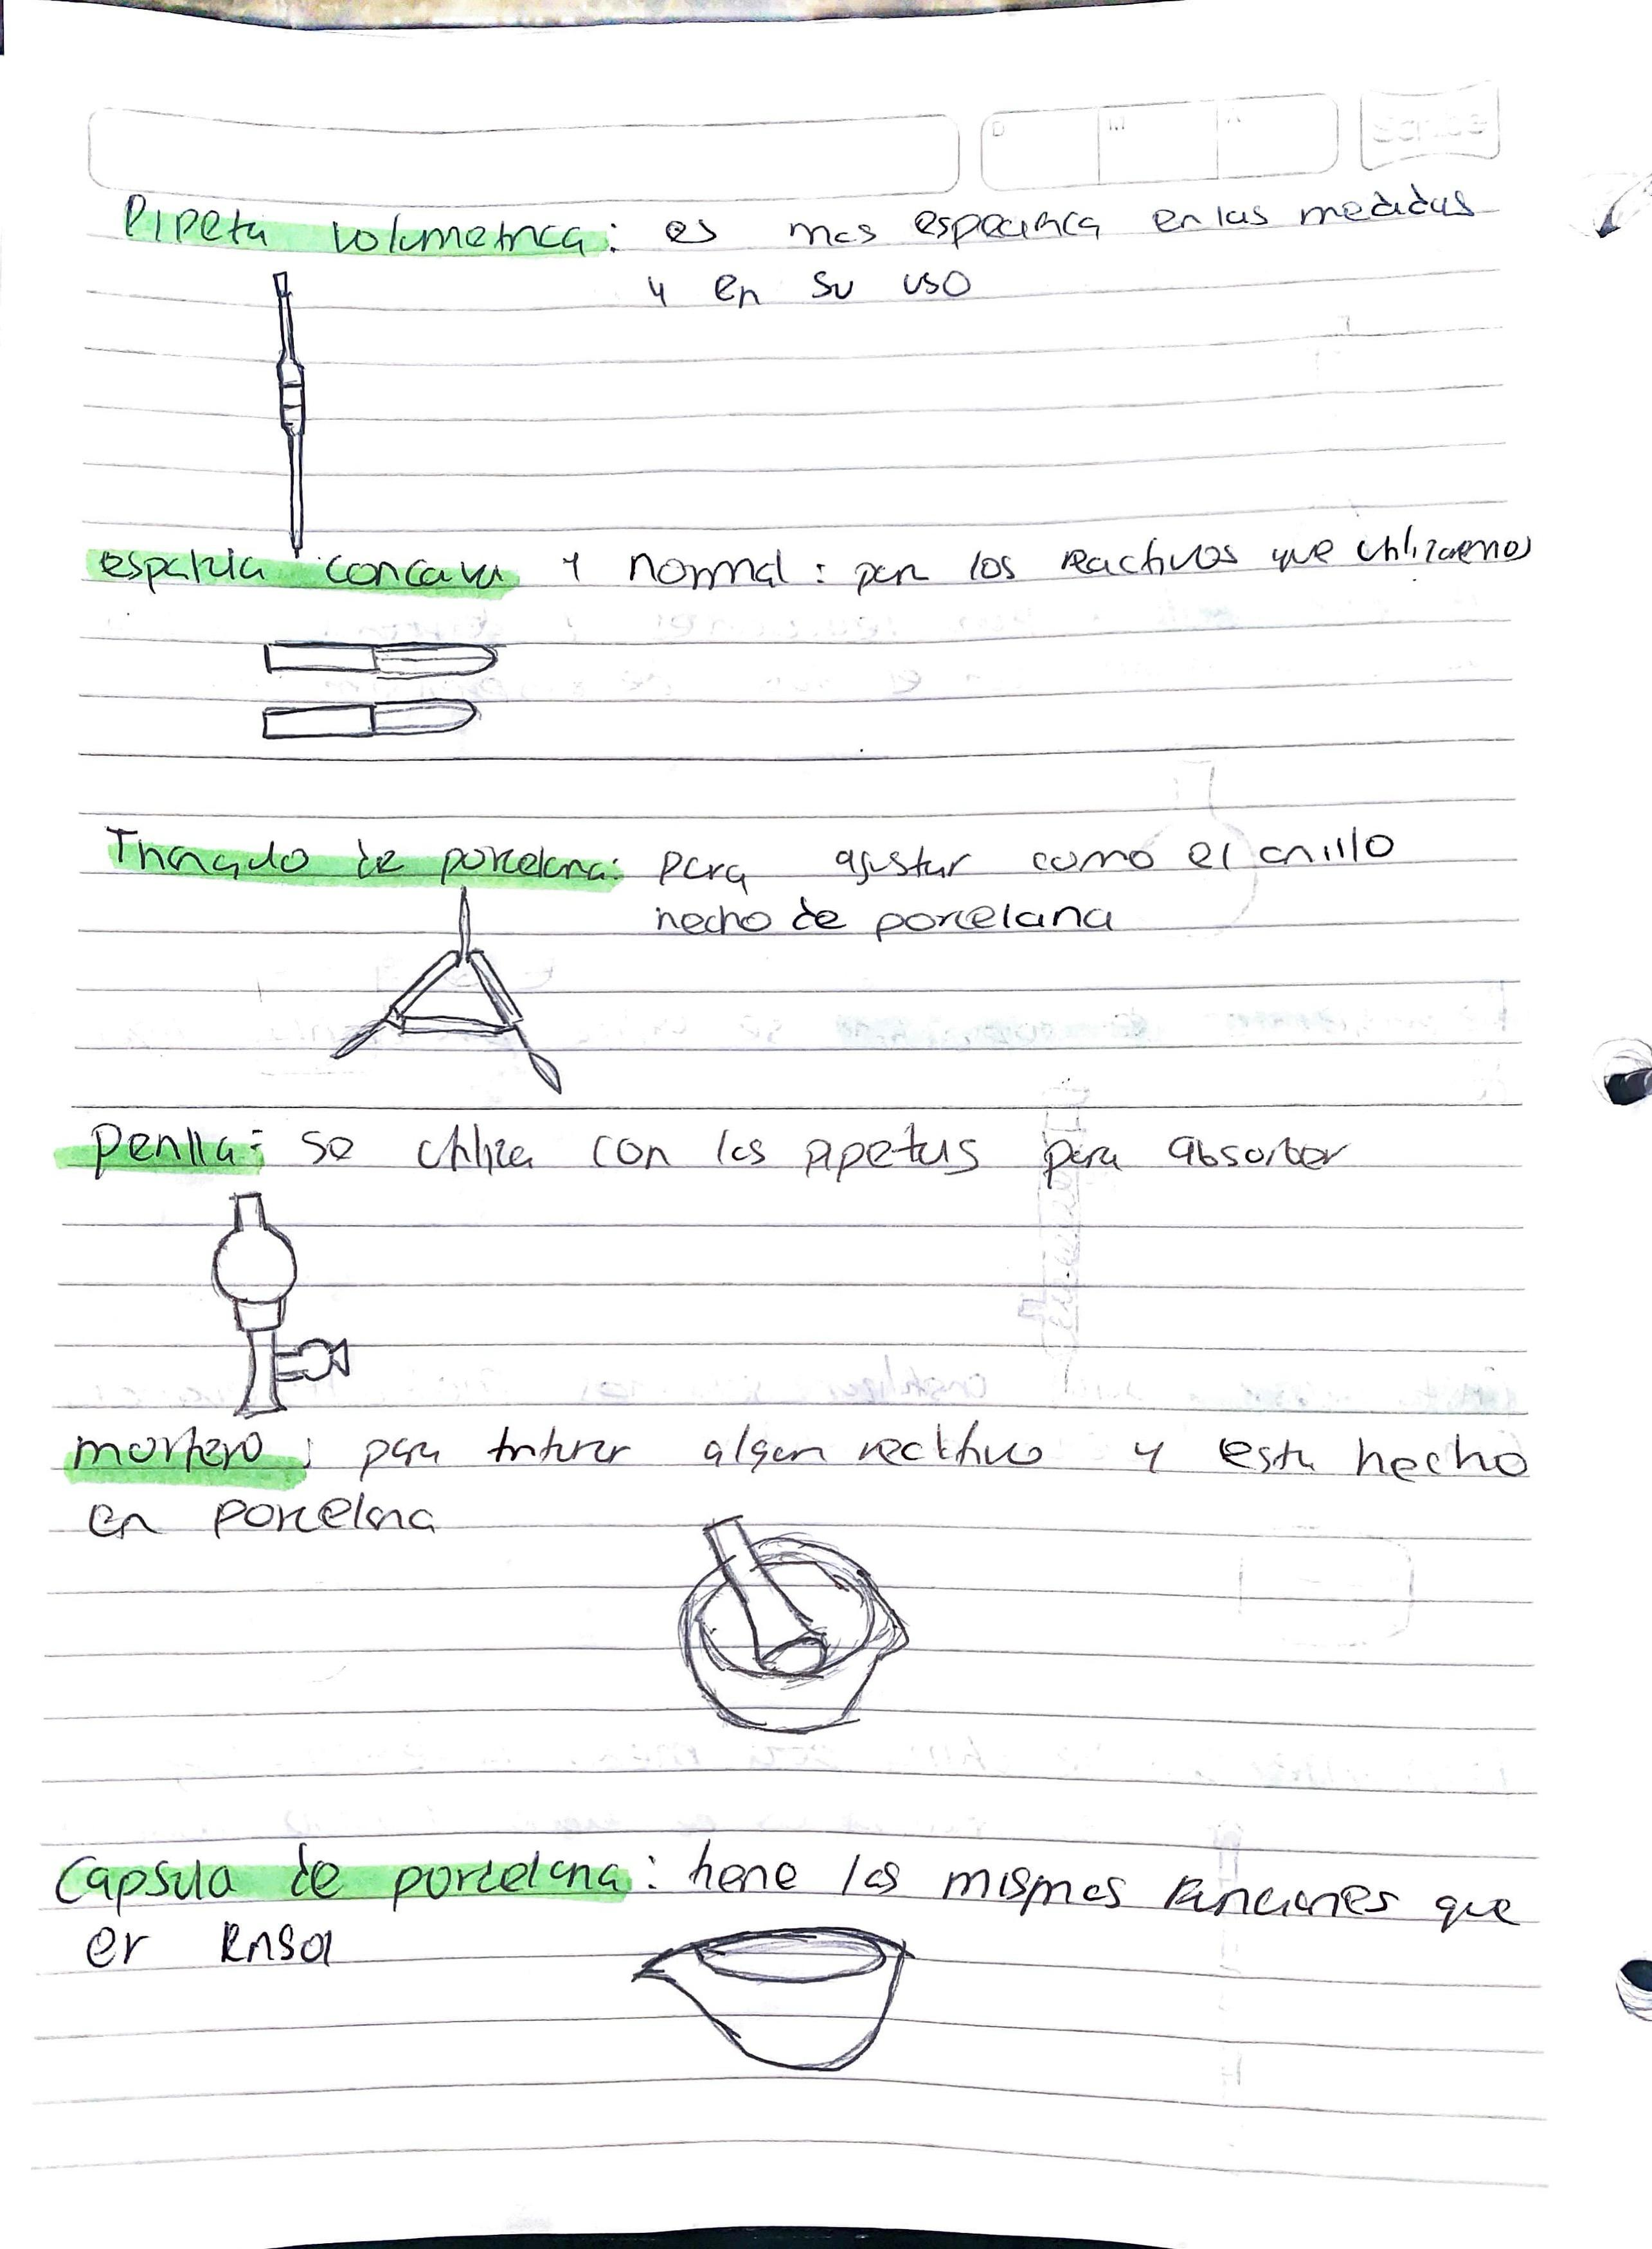 Pipeta volumetrica: es mas especifica en las medidas
y en su uso
espatula concava y normal: para los reactivos que utilizaremos
Triangulo de porcelana: para ajustar como el anillo
hecho de porcelana
Perilla: se utiliza con las pipetas para absorber
mortero: para triturar algun reactivo y esta hecho
en porcelana
Capsula de porcelana: tiene las mismas funciones que
er